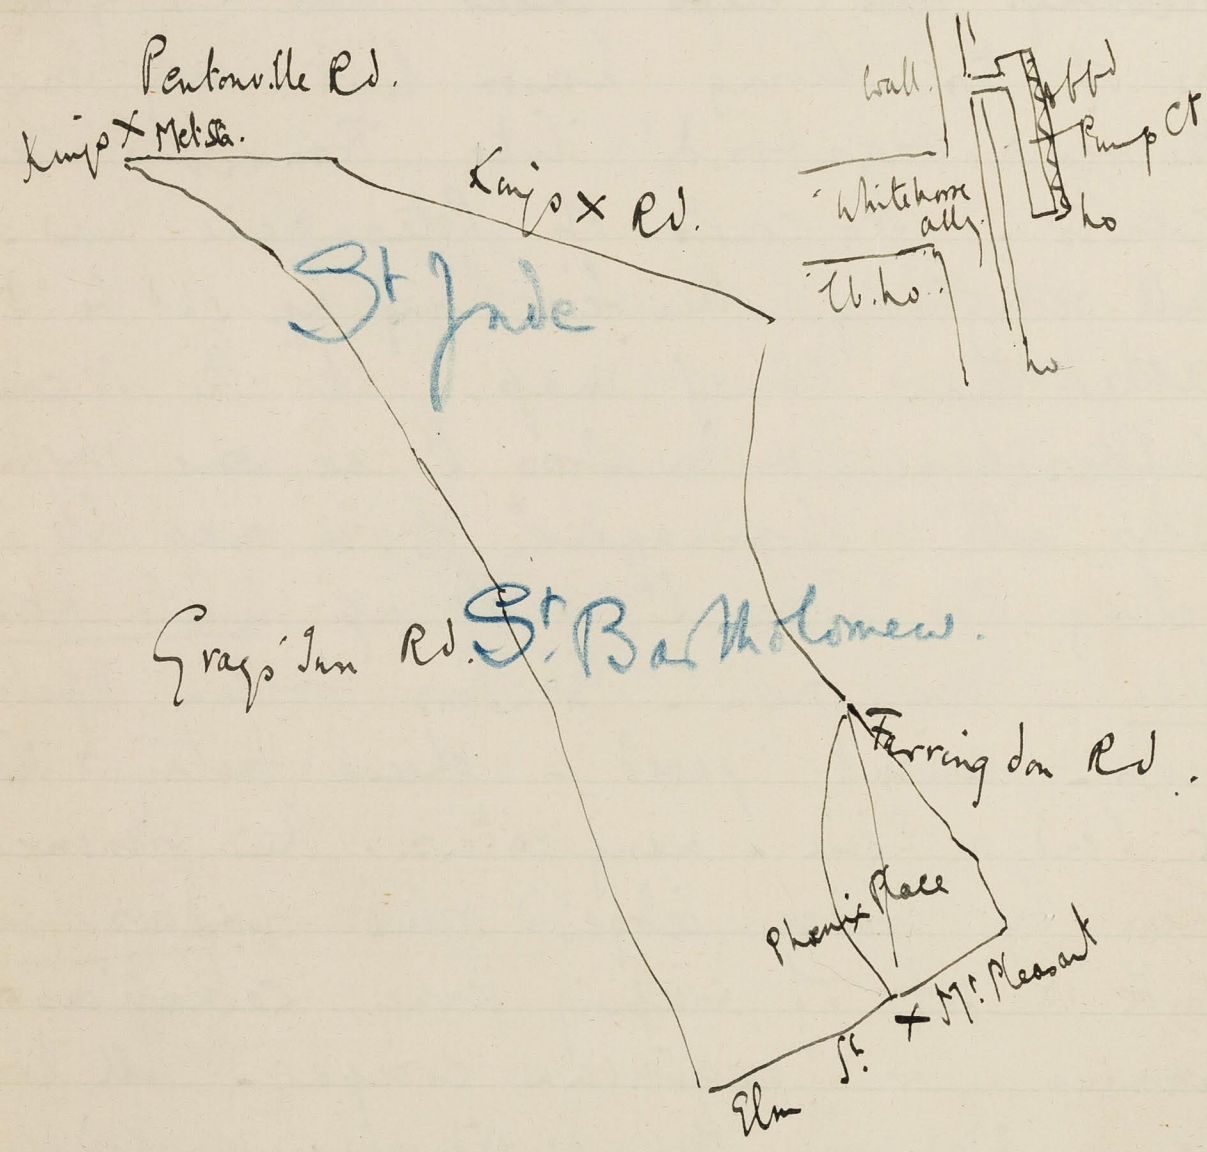 Pentonville Rd.
Kings X Met. Sta.
Kings X Rd.
wall.
Pump Ct
Whitehorse
ally.
ho
ho
St Jude
Grays Inn Rd.
St. Bartholomew.
Farringdon Rd.
Phœnix Place
Mt. Pleasant
Elm St.